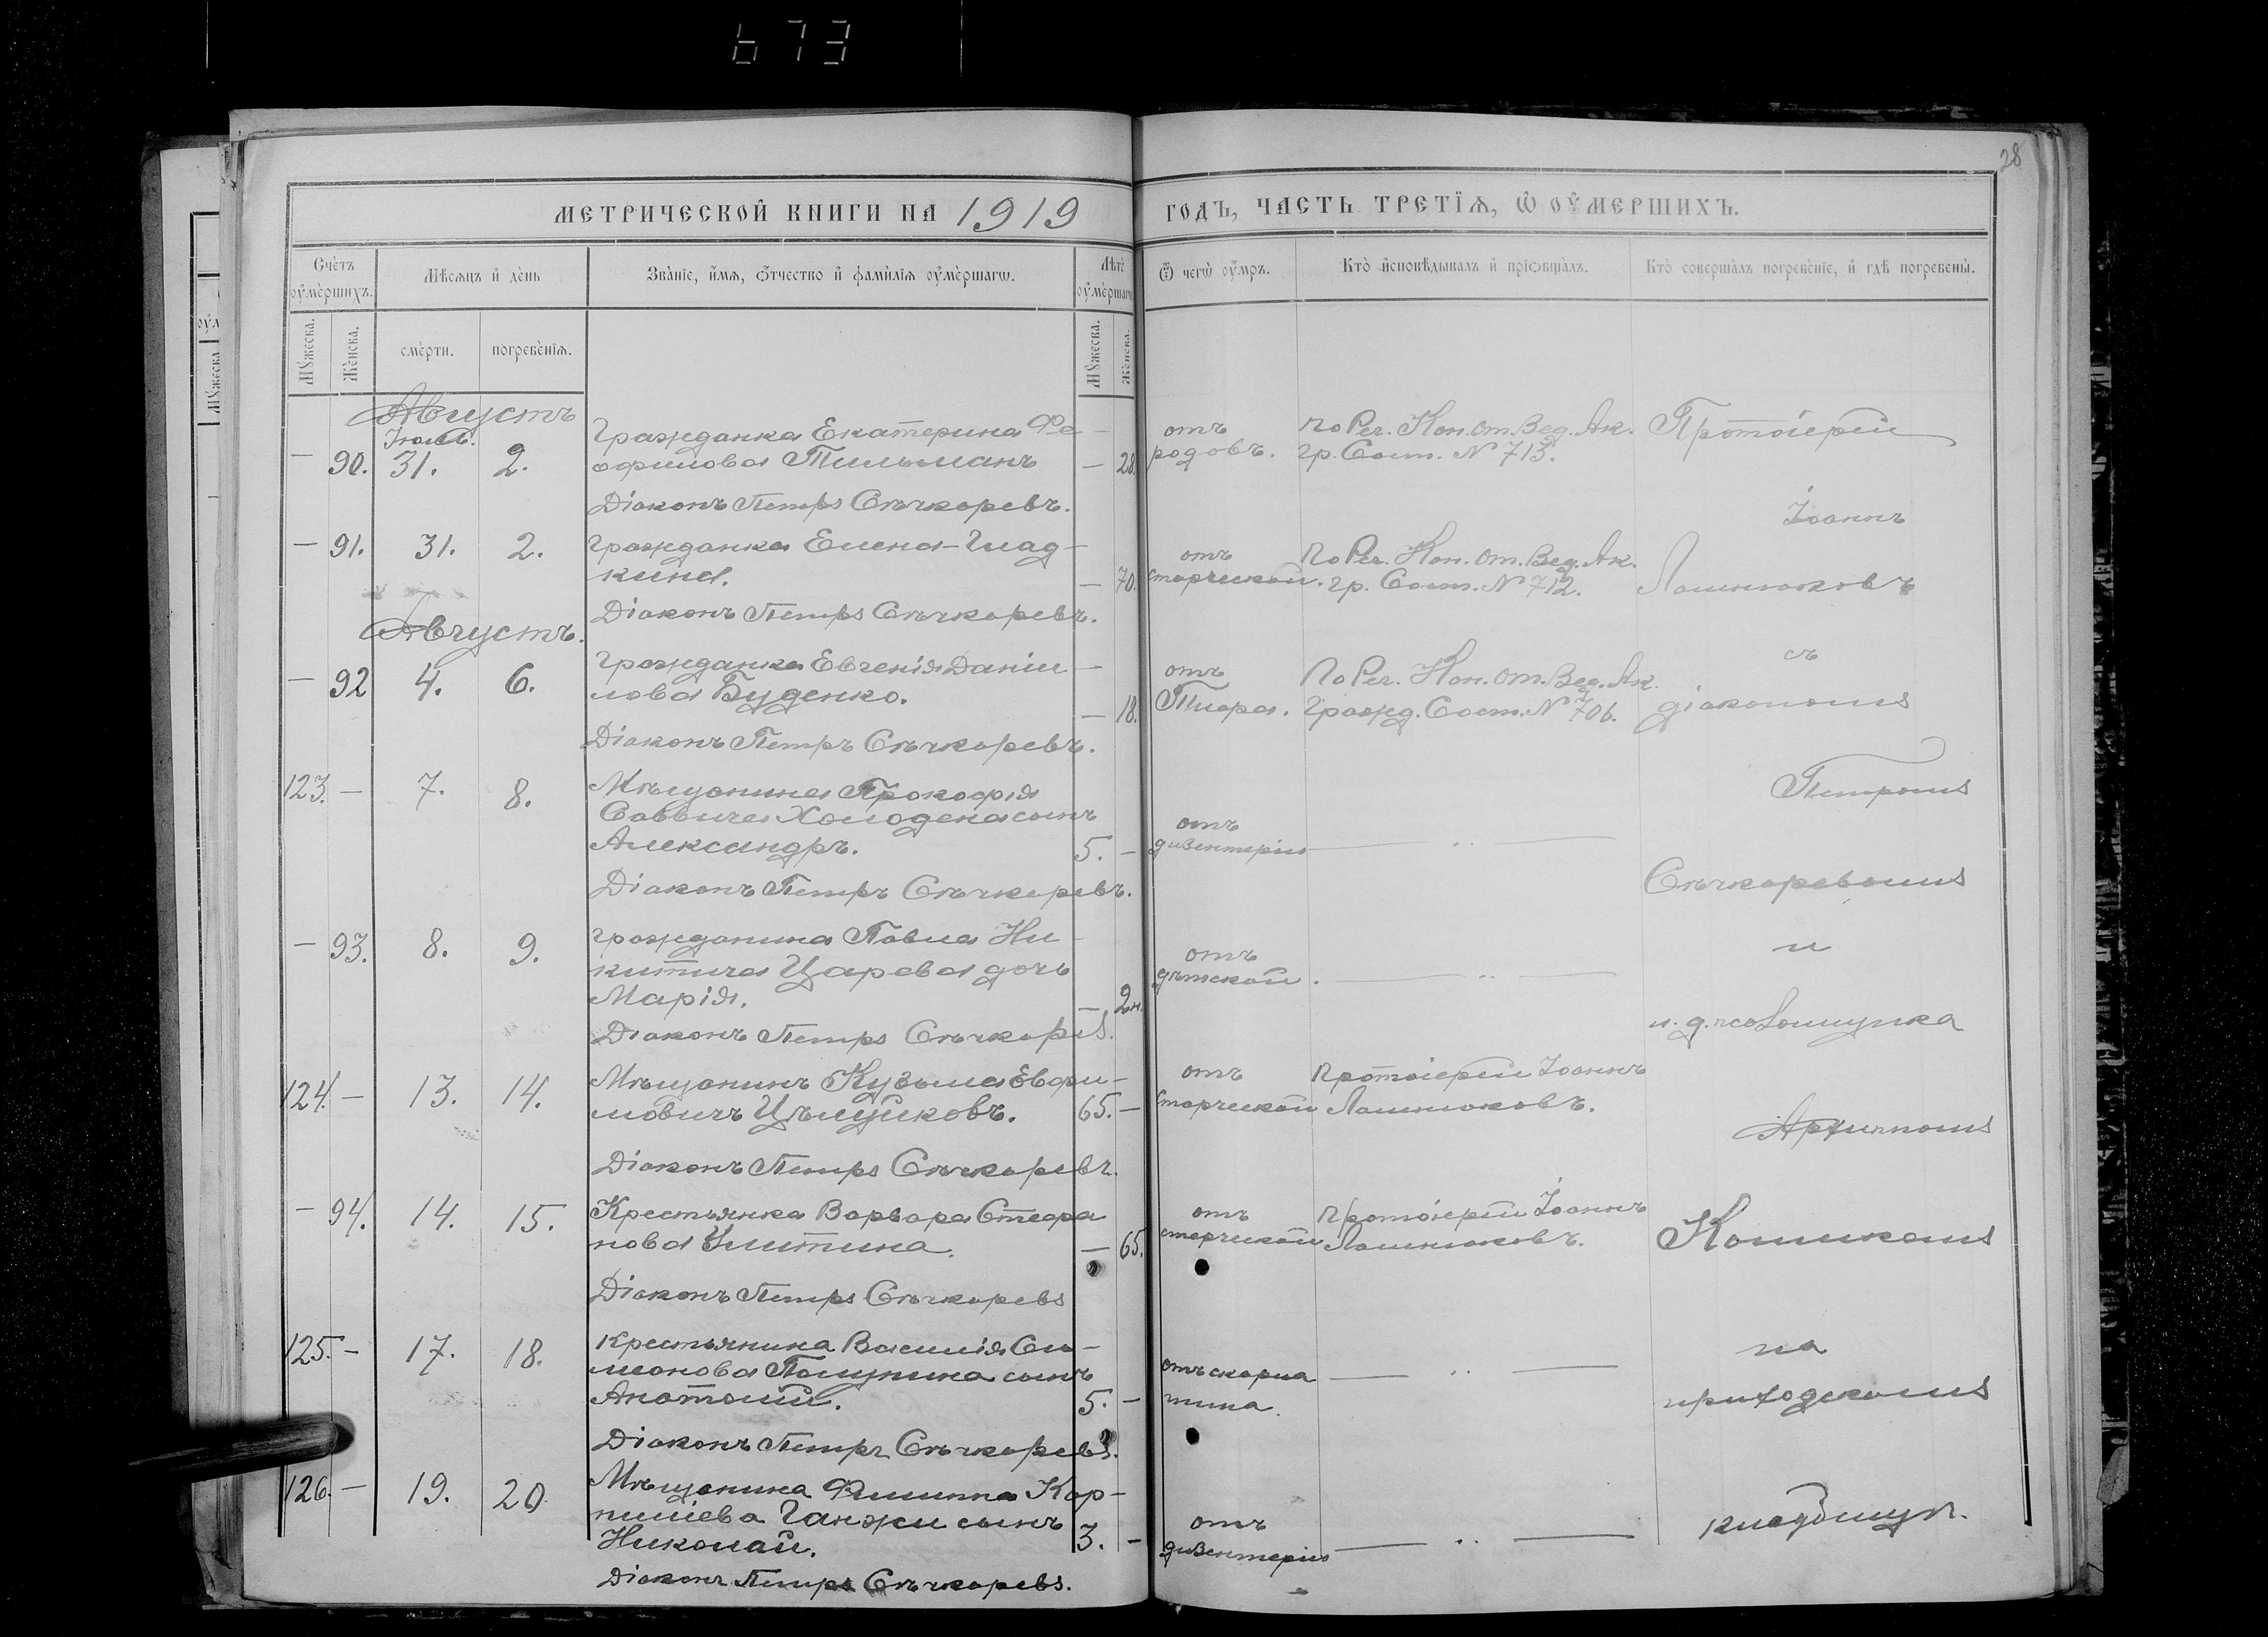 673
28
МЕТРИЧЕСКОЙ КНИГИ НА 1919
ГОДЪ, ЧАСТЬ ТРЕТІЯ, Ѿ ОУМЕРШИХЪ.
Счетъ оумершихъ.
Мѣсяцъ и день
Званіе, имя, отчество и фамилія оумершагѡ.
Лѣта оумершагѡ
Ѿ чегѡ оумръ.
Кто исповѣдывалъ и пріобщалъ.
Кто совершалъ погребеніе, и гдѣ погребены.
Мужеска.
Женска.
смерти.
погребенія.
Мужеска.
Женска.
Августъ
Іюль.
— 90. 31. 2. Гражданка Екатерина Фе-
офилова Тильманъ — 28.
отъ родовъ.
по Рег. Кон. от. Вед. Ак.
гр. Сост. № 713.
Діаконъ Петръ Сѣчкоревъ.
— 91. 31. 2. Гражданка Елена Глад-
кина. — 70.
отъ старческой.
По Рег. Кон. от. Вед. Ак.
гр. Сост. № 712.
Діаконъ Петръ Сѣчкоревъ.
Августъ.
— 92 4. 6. Гражданка Евгенія Даніи-
лова Буденко. — 18.
отъ Тифа.
По Рег. Кон. от. Вед. Ак.
Гражд. Сост. № 706.
Діаконъ Петръ Сѣчкоревъ.
123. — 7. 8. Мѣщанина Прокофія
Саввича Холодена сынъ
Александръ. 5. —
отъ дизентеріи
Діаконъ Петръ Сѣчкоревъ.
— 93. 8. 9. Гражданина Павла Ни-
китича Царева дочь
Марія. — 2н.
отъ дѣтской.
Діаконъ Петръ Сѣчкоревъ.
124. — 13. 14. Мѣщанинъ Кузьма Евфи-
мовичъ Цѣлуйковъ. 65. —
отъ старческой
Протоіерей Іоаннъ
Лашнюковъ.
Діаконъ Петръ Сѣчкоревъ.
— 94. 14. 15. Крестьянка Варвара Стефа
нова Улитина. — 65.
отъ старческой
Протоіерей Іоаннъ
Лашнюковъ.
Діаконъ Петръ Сѣчкоревъ
125. — 17. 18. Крестьянина Василія Си-
меонова Полунина сынъ
Анатолій. 5. —
отъ скарла
тина.
Діаконъ Петръ Сѣчкоревъ.
126. — 19. 20. Мѣщанина Филиппа Кар-
пиліева Ганжи сынъ
Николай. 3. —
отъ дизентеріи
Діаконъ Петръ Сѣчкоревъ.
Протоіерей
Іоаннъ
Лашнюковъ
съ
діакономъ
Петромъ
Сѣчкоревымъ
и
и. д. псаломщика
Архиппомъ
Кошикомъ
на
приходскомъ
кладбищѣ.